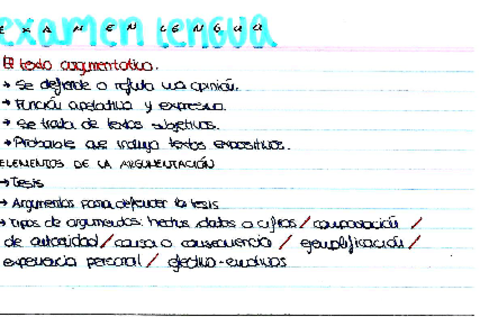 EXAMEN LENGUA
examen lengua
El texto argumentativo.
→ Se defiende o refuta una opinión.
→ Función apelativa y expresiva.
→ Se trata de textos subjetivos.
→ Probable que incluya textos expositivos.
ELEMENTOS DE LA ARGUMENTACIÓN
→ Tesis
→ Argumentos para defender la tesis
→ Tipos de argumentos: hechos, datos o cifras / comparación /
de autoridad / causa o consecuencia / ejemplificación /
experiencia personal / afectivo-emotivos